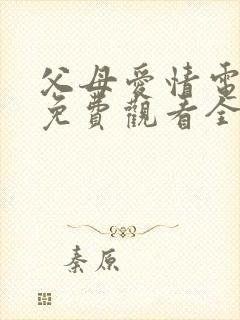 父母愛情電
免費觀看全
秦原